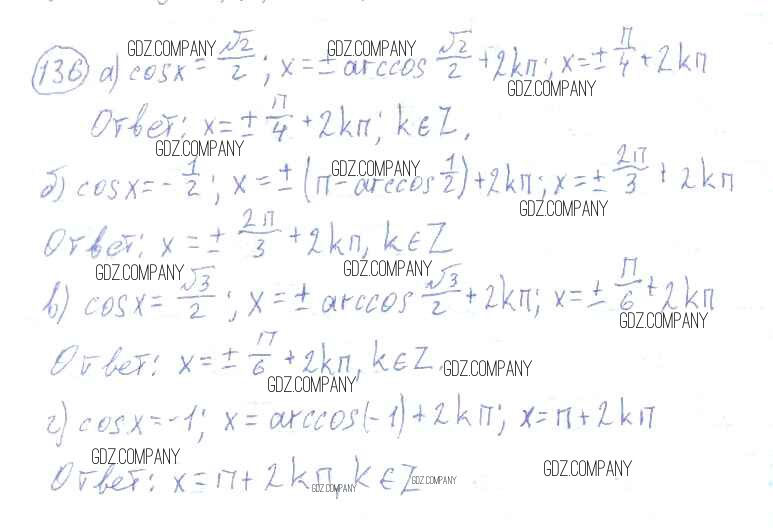 136 а) cosx = √2/2; x = ± arccos √2/2 + 2kπ; x = ± π/4 + 2kπ
Ответ: x = ± π/4 + 2kπ; k ∈ Z.
б) cosx = -1/2; x = ± (π - arccos 1/2) + 2kπ; x = ± 2π/3 + 2kπ
Ответ: x = ± 2π/3 + 2kπ, k ∈ Z
в) cosx = √3/2; x = ± arccos √3/2 + 2kπ; x = ± π/6 + 2kπ
Ответ: x = ± π/6 + 2kπ, k ∈ Z.
г) cosx = -1; x = arccos(-1) + 2kπ; x = π + 2kπ
Ответ: x = π + 2kπ, k ∈ Z
GDZ.COMPANY GDZ.COMPANY
GDZ.COMPANY
GDZ.COMPANY
GDZ.COMPANY
GDZ.COMPANY
GDZ.COMPANY GDZ.COMPANY
GDZ.COMPANY
GDZ.COMPANY
GDZ.COMPANY
GDZ.COMPANY
GDZ.COMPANY
GDZ.COMPANY GDZ.COMPANY